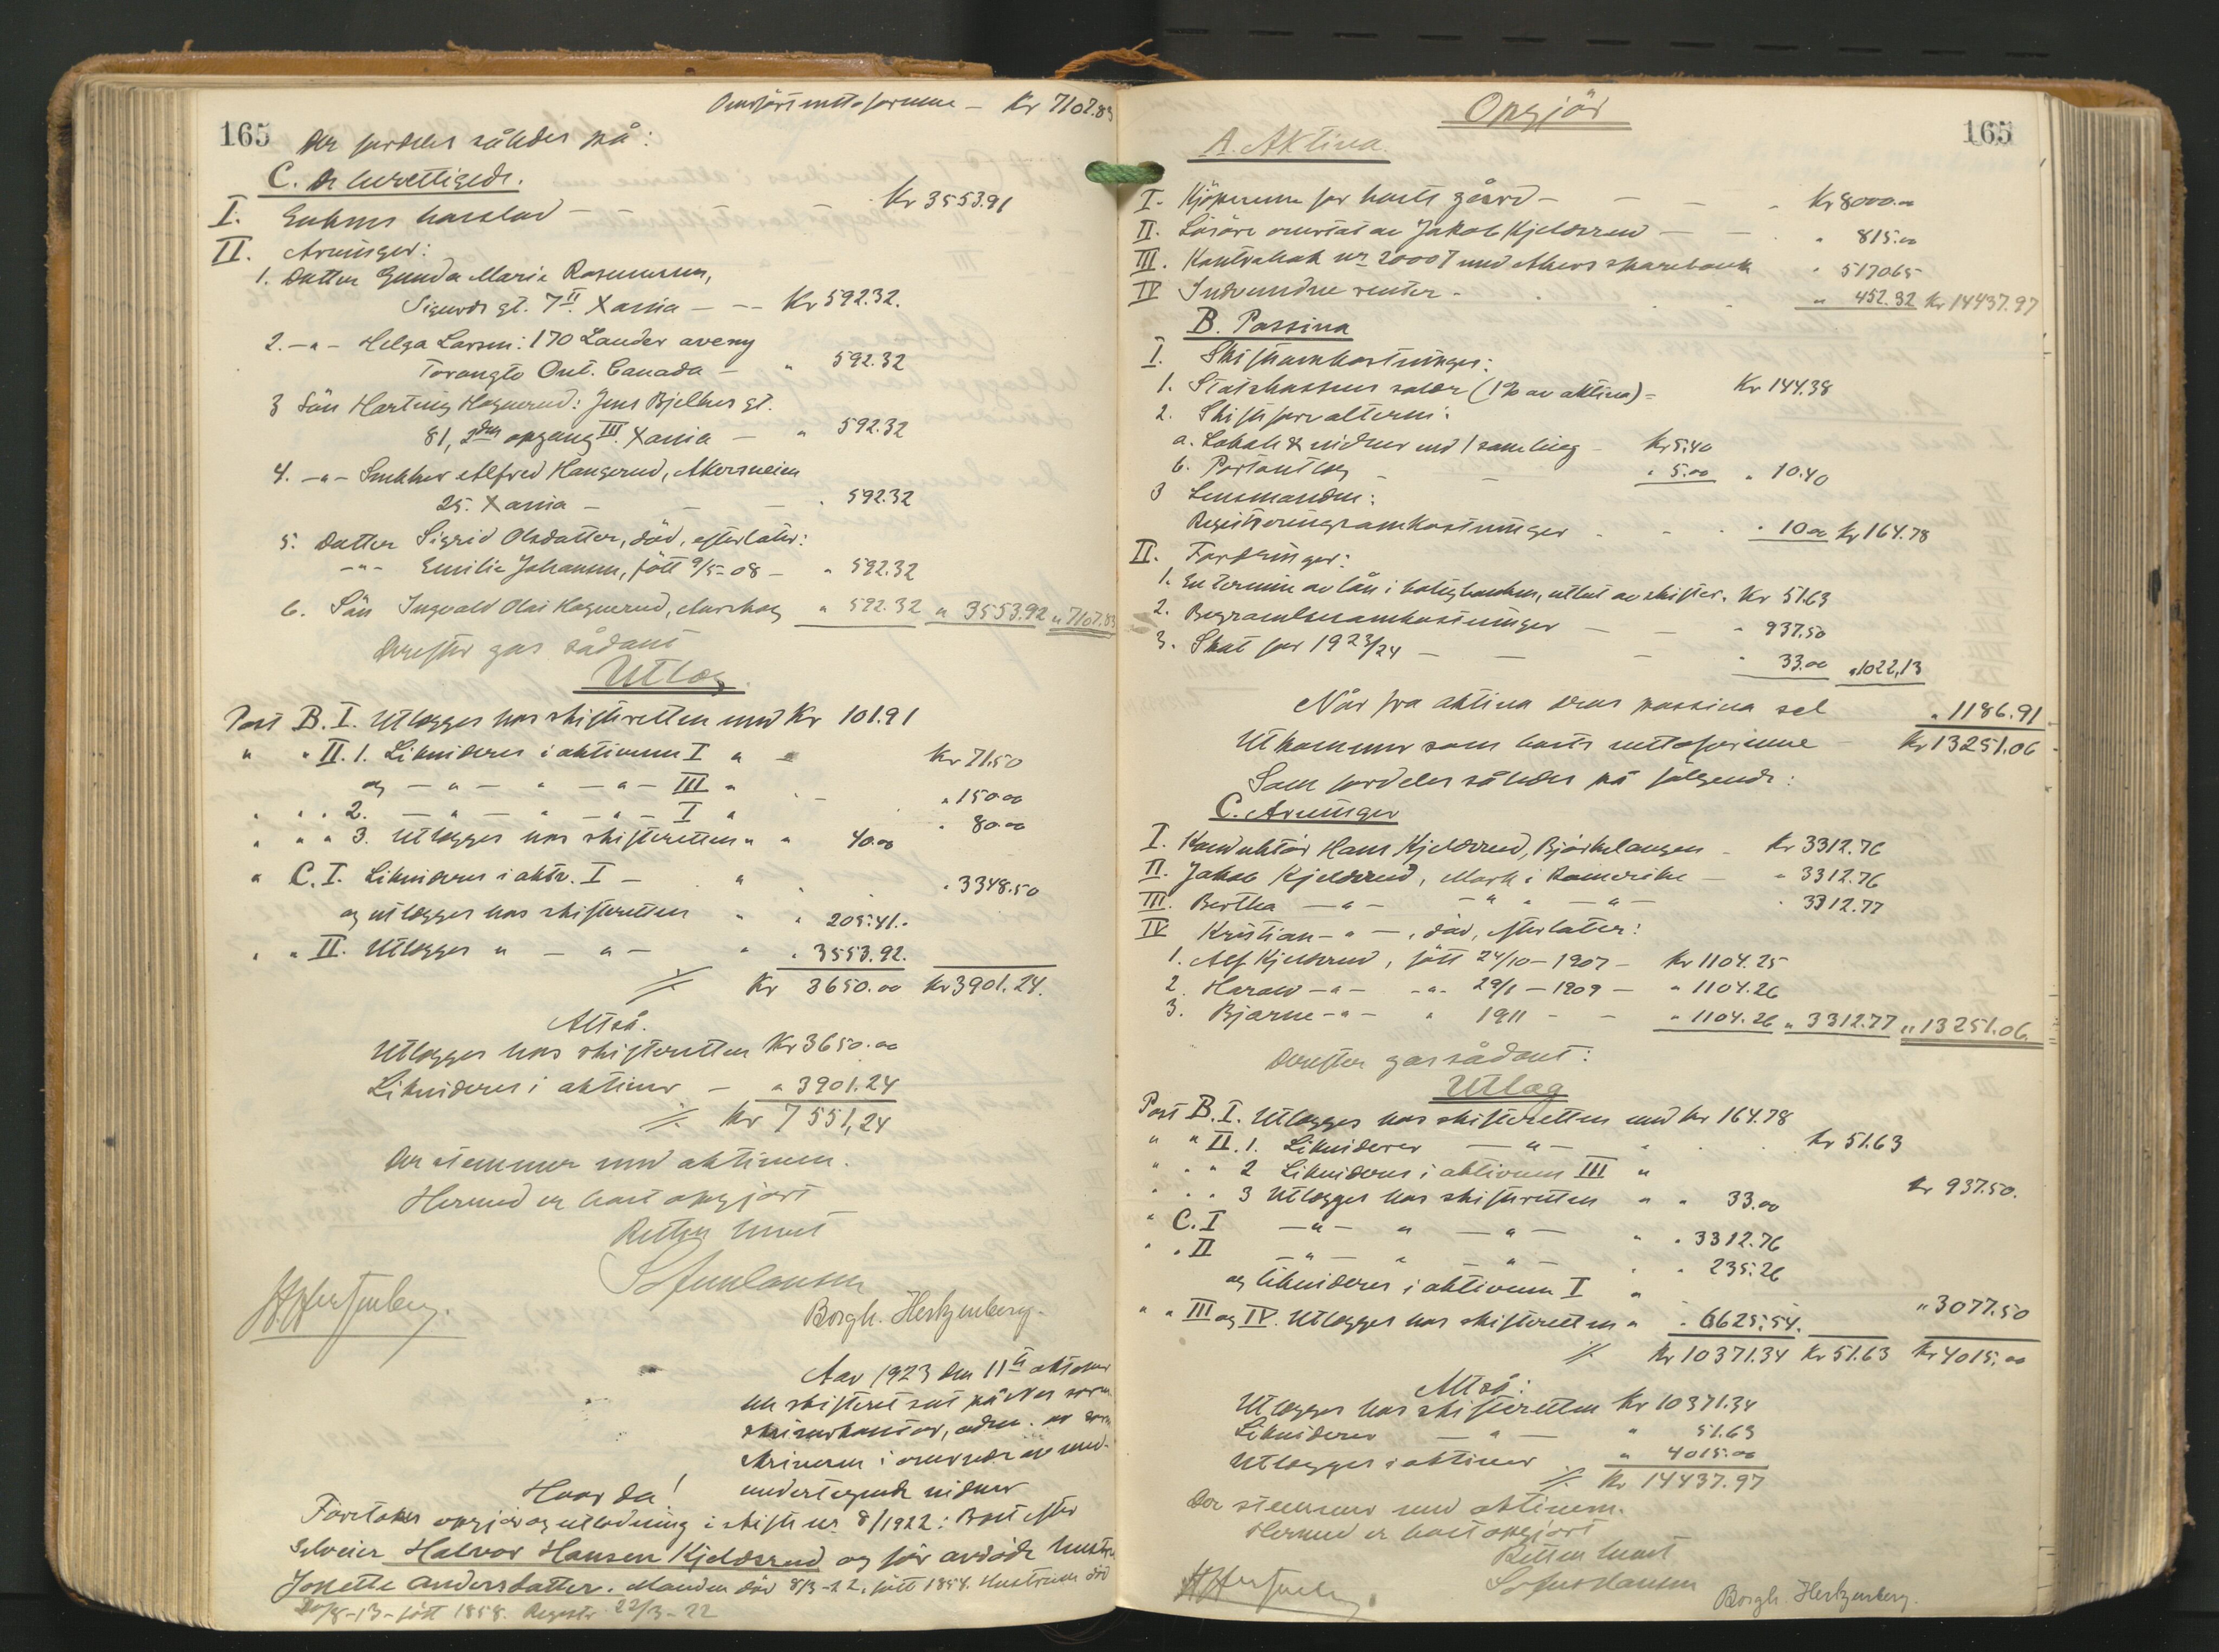 Overført nettoformue – Kr 7107.83
165 Der fordeles således på:
C. De berettigede.
I. Enkens boeslod – Kr 3553.91
II. Arvinger:
1. Datter Gunda Marie Rasmussen,
Sigurds gt. 7 II. Xania – – – Kr 592.32.
2. – " – Helga Larsen: 170 Lauder aveny
Torongto Ont. Canada – " 592.32
3 Søn Hartvig Hagnerud: Jens Bjelkes gt.
81, 2den opgang III. Xania – " 592.32
4. – " – Snekker Alfred Haugerud, Akersveien
25. Xania – – – " 592.32
5. Datter Sigrid Olsdatter, død, efterlater:
– " – Emilie Johansen, født 9/5-08 – " 592.32
6. Søn Ingvald Olai Hagnerud, Aurskog " 592.32 " 3553.92 " 7107.83
Derefter gøs sådant
Utlæg.
Post B. I. Utlægges hos skifteretten med Kr 101.91
" " II. 1. Likvideres i aktivum I " – Kr 71.50
og – " – " – " – III " – " 150.00
" " " 2. – " – " – " – I " " 80.00
" " " 3. Utlægges hos skifteretten " " 40.00
" C. I. Likvideres i aktv. I – " " 3348.50
og utlægges hos skifteretten " " 205.41.
" " II. Utlægges " – " – " " 3553.92.
Kr 3650.00 Kr 3901.24.
Altså.
Utlægges hos skifteretten Kr 3650.00
Likvideres i aktiver – " 3901.24
Kr 7551,24
Der stemmer med aktivum.
Hermed er boet opgjort
Retten hævet
Sofus Hansen
H. Hertzenberg.
Borgh. Hertzenberg.
Aar 1923 den 11te oktober
ble skifteret sat på Nes soren-
skriverkontor, adm. av soren-
skriveren i overvær av med-
undertegnede vidner
Hvorda!
Foretokes opgjør og utlodning i skifte nr. 8/1922: Boet efter
selveier Halvor Hansen Kjeldsrud og før avdøde hustru
Josette Andersdatter. Manden død 8/3-22, født 1854. Hustruen død
20/8-13 – født 1858. Registr. 22/3-22
Opgjør
165
A. Aktiva.
I. Kjøpesum for boets gård – – – – Kr 8000.00
II. Løsøre overtat av Jakob Kjeldsrud – – " 815.00
III. Kontrabok nr 20007 med Akers sparebank " 5170.65
IV Indvundne renter – " 452.32 Kr 14437.97
B. Passiva
I. Skifteomkostninger:
1. Statskassens salær (1% av aktiva) – Kr 144.38
2. Skifteforvalteren:
a. Lokale & vidner ved 1 samling – Kr 5.40
b. Portoutlæg – " 5.00 " 10.40
3 Lensmanden:
Registreringsomkostninger . – . " 10.00 Kr 164.78
II. Fordringer:
1. En termin av lån i boligbanken, utlagt av skifter. Kr 51.63
2. Begravelsesomkostninger – – " 937.50
3. Skat for 1923/24 – – – " 33.00 " 1022,13
Når fra aktiva dras passiva sel " 1186.91
Utkommer som boets nettoformue – Kr 13251.06
Som fordeles således på følgende:
C. Arvinger
I. Konduktør Hans Kjeldsrud, Bjørkelangen – Kr 3312.76
II. Jakob Kjeldsrud, Mork i Romerike – " 3312.76
III. Bertha – " – – " " – " – " 3312.77
IV Kristian – " – , død, efterlater:
1. Alf Kjeldsrud, født 24/10-1907 – Kr 1104.25
2. Harald – " – – " – 29/1-1909 – " 1104.26
3. Bjarne – " – " 1911 – – " 1104.26 " 3312.77 " 13251.06.
Derefter gøs sådant:
Utlæg
Post B. I. Utlægges hos skifteretten med kr 164.78
" " II. 1. Likviderer – " – " . . Kr 51.63
" " " 2 Likvideres i aktivum III " Kr 937.50.
" " " 3 Utlægges hos skifteretten " " 33.00
" C. I – " – " – " – " " 3312.76
" " II – " – " – " – " " 235.26
og likvideres i aktivum I " " 3077.50
" " III og IV. Utlægges hos skifteretten " " 6625.54.
Kr 10371.34 Kr 51.63 Kr 4015.00
Altså:
Utlægges hos skifteretten Kr 10371.34
Likviderer – " – " 51.63
Utlægges i aktiver " 4015.00
Kr 14437.97
Der stemmer med aktivum.
Hermed er boet opgjort
Retten hævet
H. Hertzenberg.
Sofus Hansen
Borgh. Hertzenberg.